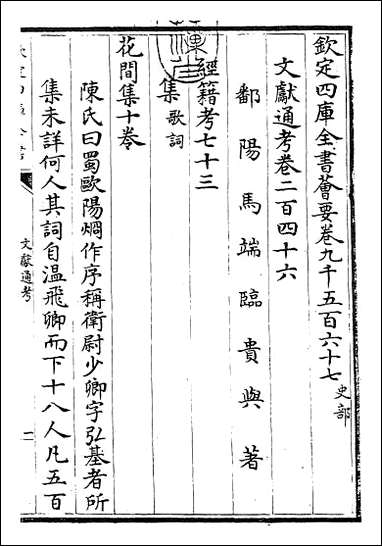 欽定四庫全書薈要卷九千五百六十七 史部
文獻通考卷二百四十六
鄱陽馬端臨貴與著
經籍考七十三
集 歌詞
花間集十卷
陳氏曰蜀歐陽烱作序稱衛尉少卿字弘基者所
集未詳何人其詞自温飛卿而下十八人凡五百
文獻通考